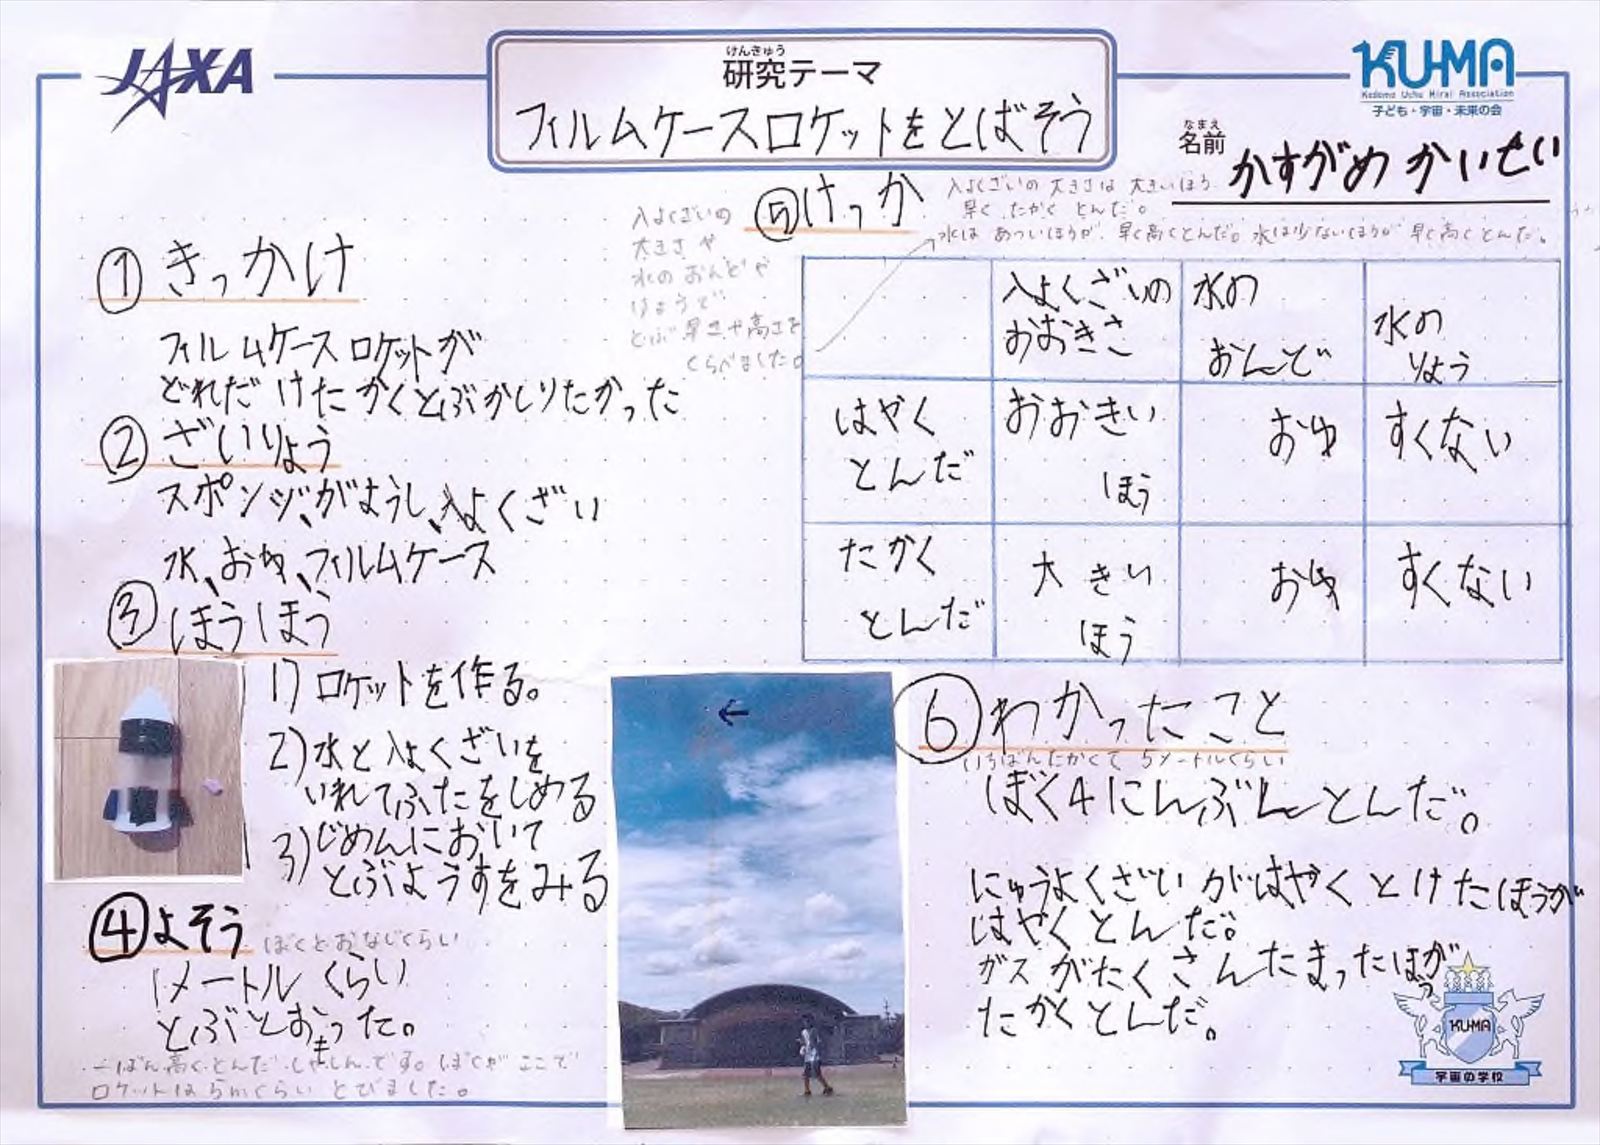 JAXA
けんきゅう
研究テーマ
フィルムケースロケットをとばそう
KU-MA
Kodomo Uchu Mirai Association
子ども・宇宙・未来の会
なまえ
名前
かすがめ かいせい
① きっかけ
フィルムケースロケットが
どれだけたかくとぶかしりたかった
② ざいりょう
スポンジ、がようし、入よくざい
水、おゆ、フィルムケース
③ ほうほう
1) ロケットを作る。
2) 水と入よくざいを
いれてふたをしめる
3) じめんにおいて
とぶようすをみる
④ よそう
ぼくとおなじくらい
1メートルくらい
とぶとおもった。
一ばん高くとんだしゃしんです。ぼくがここで
ロケットは5mくらいとびました。
入よくざいの
大きさや
水のおんどや
りょうで
とぶ早さや高さを
くらべました。
⑤ けっか
入よくざいの大きさは大きいほう
早く、たかくとんだ。
水はあついほうが、早く高くとんだ。水は少ないほうが早く高くとんだ。
入よくざいのおおきさ
水のおんど
水のりょう
はやくとんだ
おおきいほう
おゆ
すくない
たかくとんだ
大きいほう
おゆ
すくない
←
⑥ わかったこと
いちばんたかくて5メートルくらい
ぼく4にんぶんとんだ。
にゅうよくざいがはやくとけたほうが
はやくとんだ。
ガスがたくさんたまったほうが
たかくとんだ。
KU-MA
宇宙の学校